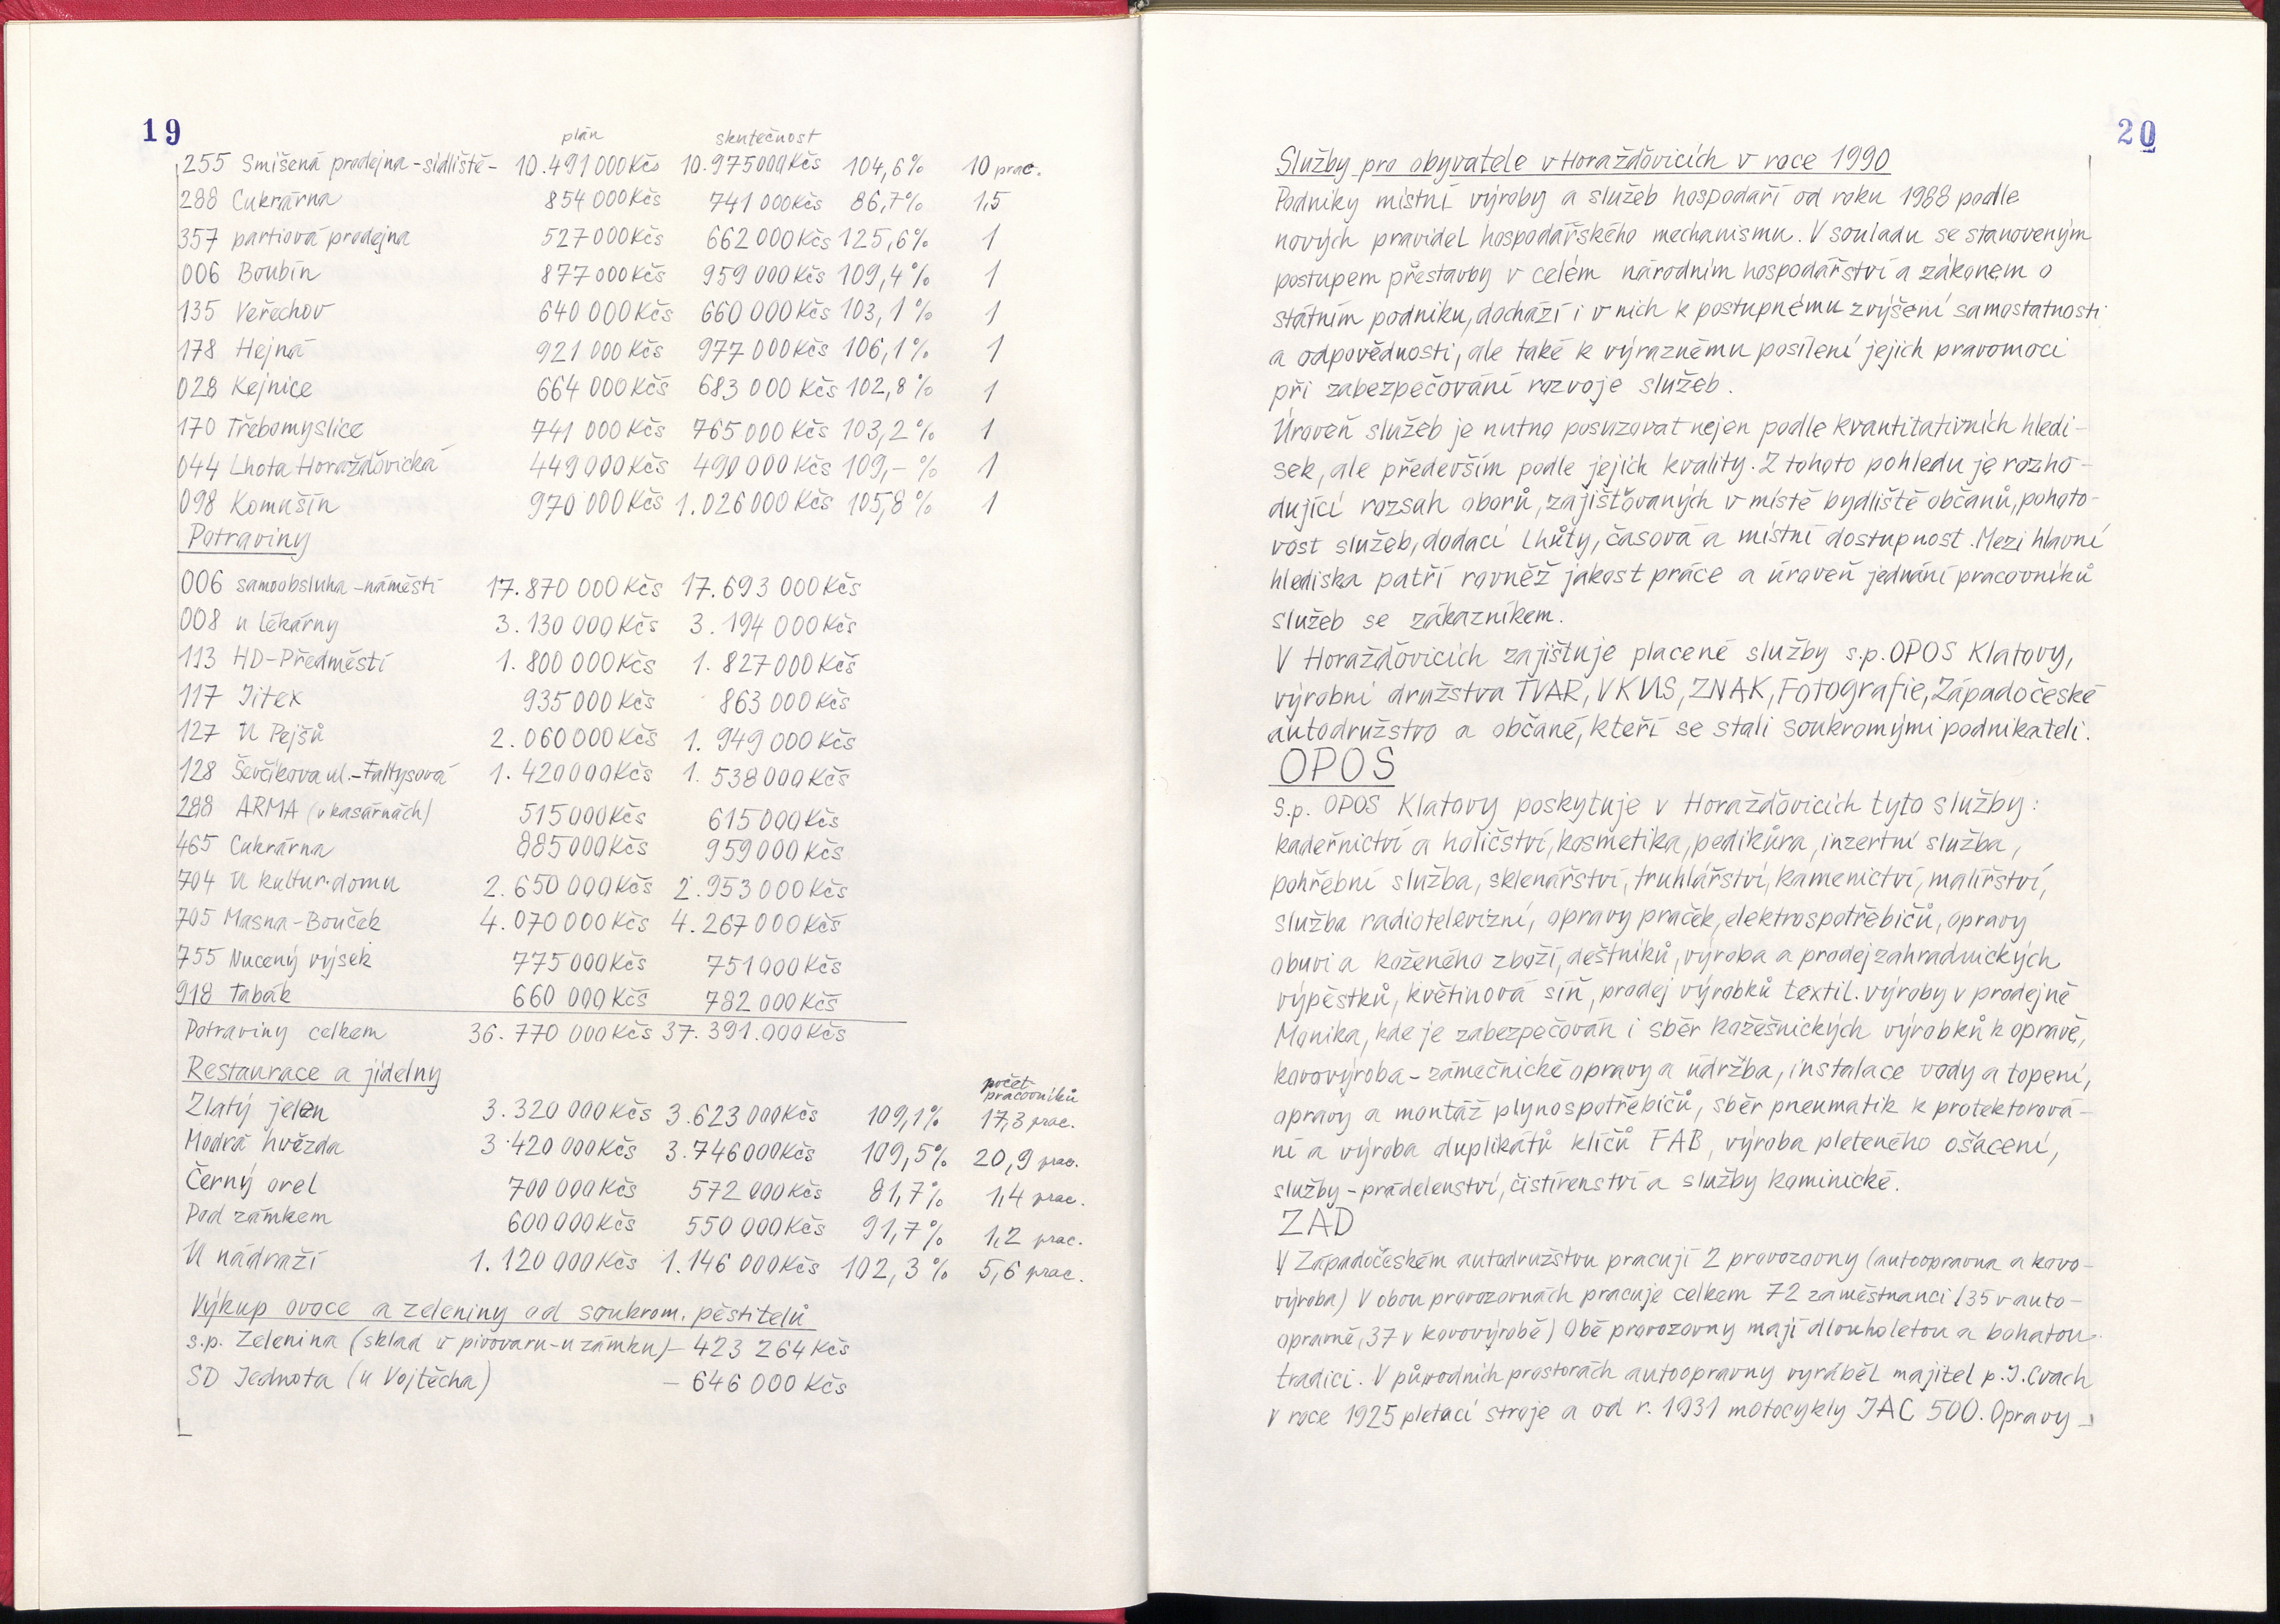 19
plán skutečnost
255 Smíšená prodejna-sídliště- 10.491 000Kčs 10.975000Kčs 104,6% 10 prac.
288 Cukrárna 854 000Kčs 741 000Kčs 86,7% 1,5
357 partiová prodejna 527 000Kčs 662 000Kčs 125,6% 1
006 Boubín 877 000Kčs 959 000Kčs 109,4% 1
135 Veřechov 640 000Kčs 660 000Kčs 103,1% 1
178 Hejná 921 000Kčs 977 000Kčs 106,1% 1
028 Kejnice 664 000Kčs 683 000 Kčs 102,8% 1
170 Třebomyslice 741 000Kčs 765 000Kčs 103,2% 1
044 Lhota Horažďovická 449 000Kčs 490 000Kčs 109,-% 1
098 Komušín 970 000Kčs 1.026 000Kčs 105,8% 1
Potraviny
006 samoobsluha-náměstí 17.870 000Kčs 17.693 000Kčs
008 u lékárny 3.130 000Kčs 3.194 000Kčs
113 HD-Předměstí 1.800 000Kčs 1.827 000Kčs
117 Jitex 935 000Kčs 863 000Kčs
127 U Pejšů 2.060 000Kčs 1.949 000Kčs
128 Ševčíkova ul.-Faltysová 1.420 000Kčs 1.538 000Kčs
288 ARMA (v kasárnách) 515 000Kčs 615 000Kčs
465 Cukrárna 885 000Kčs 959 000Kčs
704 U kultur.domu 2.650 000Kčs 2.953 000Kčs
705 Masna-Bouček 4.070 000Kčs 4.267 000Kčs
755 Nucený výsek 775 000Kčs 751 000Kčs
918 Tabák 660 000Kčs 782 000Kčs
Potraviny celkem 36.770 000Kčs 37.391.000Kčs
Restaurace a jídelny počet pracovníků
Zlatý jelen 3.320 000Kčs 3.623 000Kčs 109,1% 17,3 prac.
Modrá hvězda 3.420 000Kčs 3.746000Kčs 109,5% 20,9 prac.
Černý orel 700 000Kčs 572 000Kčs 81,7% 1,4 prac.
Pod zámkem 600 000Kčs 550 000Kčs 91,7% 1,2 prac.
U nádraží 1.120 000Kčs 1.146 000Kčs 102,3% 5,6 prac.
Výkup ovoce a zeleniny od soukrom. pěstitelů
s.p. Zelenina (sklad v pivovaru-u zámku)- 423 264Kčs
SD Jednota (u Vojtěcha) - 646 000 Kčs
20
Služby pro obyvatele v Horažďovicích v roce 1990
Podniky místní výroby a služeb hospodaří od roku 1988 podle
nových pravidel hospodářského mechanismu. V souladu se stanoveným
postupem přestavby v celém národním hospodářství a zákonem o
státním podniku, dochází i v nich k postupnému zvýšení samostatnosti
a odpovědnosti, ale také k výraznému posílení jejich pravomoci
při zabezpečování rozvoje služeb.
Úroveň služeb je nutno posuzovat nejen podle kvantitativních hledi-
sek, ale především podle jejich kvality. Z tohoto pohledu je rozho-
dující rozsah oborů, zajišťovaných v místě bydliště občanů, pohoto-
vost služeb, dodací lhůty, časová a místní dostupnost. Mezi hlavní
hlediska patří rovněž jakost práce a úroveň jednání pracovníků
služeb se zákazníkem.
V Horažďovicích zajištuje placené služby s.p. OPOS Klatovy,
výrobní družstva TVAR, VKUS, ZNAK, Fotografie, Západočeské
autodružstvo a občané, kteří se stali soukromými podnikateli.
OPOS
s.p. OPOS Klatovy poskytuje v Horažďovicích tyto služby:
kadeřnictví a holičství, kosmetika, pedikůra, inzertní služba,
pohřební služba, sklenářství, truhlářství, kamenictví, malířství,
služba radiotelevizní, opravy praček, elektrospotřebičů, opravy
obuvi a koženého zboží, deštníků, výroba a prodej zahradnických
výpěstků, květinová síň, prodej výrobků textil. výroby v prodejně
Monika, kde je zabezpečován i sběr kožešnických výrobků k opravě,
kovovýroba-zámečnické opravy a údržba, instalace vody a topení,
opravy a montáž plynospotřebičů, sběr pneumatik k protektorová-
ní a výroba duplikátů klíčů FAB, výroba pleteného ošacení,
služby-prádelenství, čistírenství a služby kominické.
ZAD
V Západočeském autodružstvu pracují 2 provozovny (autoopravna a kovo-
výroba) V obou provozovnách pracuje celkem 72 zaměstnanci (35 v auto-
opravně, 37 v kovovýrobě) Obě provozovny mají dlouholetou a bohatou
tradici. V původních prostorách autoopravny vyráběl majitel p.J.Cvach
v roce 1925 pletací stroje a od r. 1931 motocykly JAC 500. Opravy